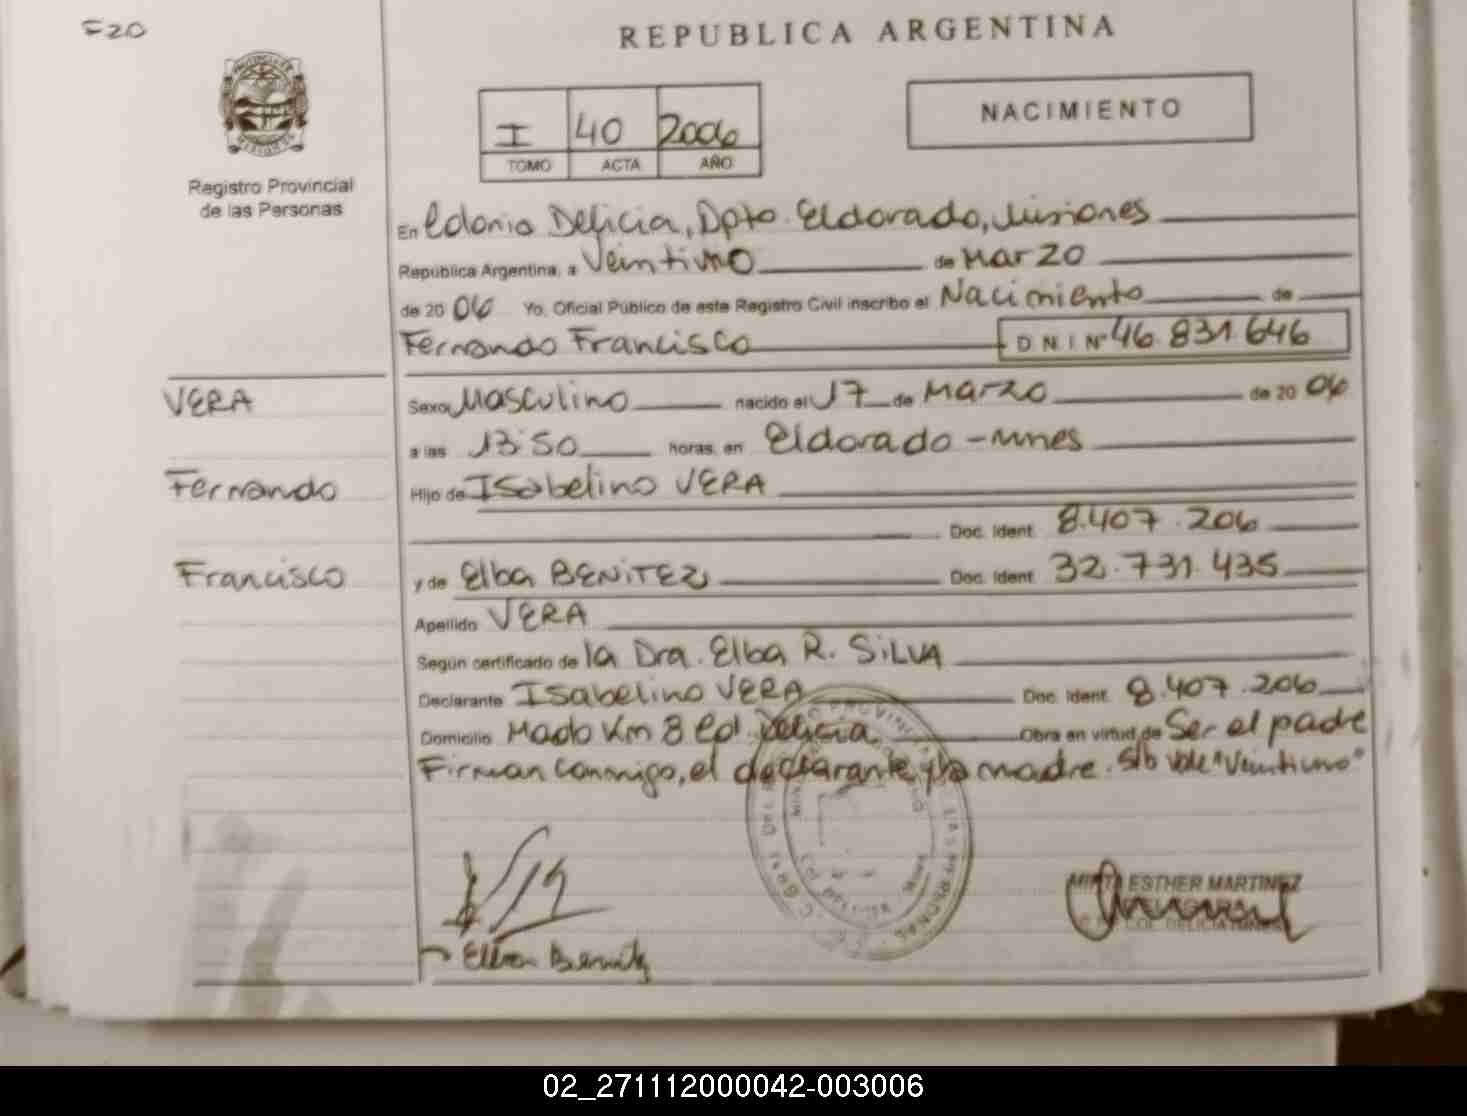 F20
REPUBLICA ARGENTINA
I 40 2006
TOMO ACTA AÑO
NACIMIENTO
Registro Provincial
de las Personas
En Colonia Delicia, Dpto. Eldorado, Misiones
República Argentina, a Veintiuno de Marzo
de 2006 Yo, Oficial Público de este Registro Civil inscribo el Nacimiento de
Fernando Francisco D N I Nº 46.831.646
VERA
Fernando
Francisco
Sexo Masculino nacido el 17 de Marzo de 2006
a las 13:50 horas, en Eldorado - Mnes
Hijo de Isabelino VERA
Doc. Ident. 8.407.206
y de Elba BENITEZ Doc. Ident. 32.731.435
Apellido VERA
Según certificado de la Dra. Elba R. SILVA
Declarante Isabelino VERA Doc. Ident. 8.407.206
Domicilio Mado Km 8 Col. Delicia Obra en virtud de Ser el padre
Firman conmigo, el declarante y la madre. S/b vale "Veintiuno"
Elba Benitez
ESTHER MARTINEZ
COL. DELICIA
02_271112000042-003006